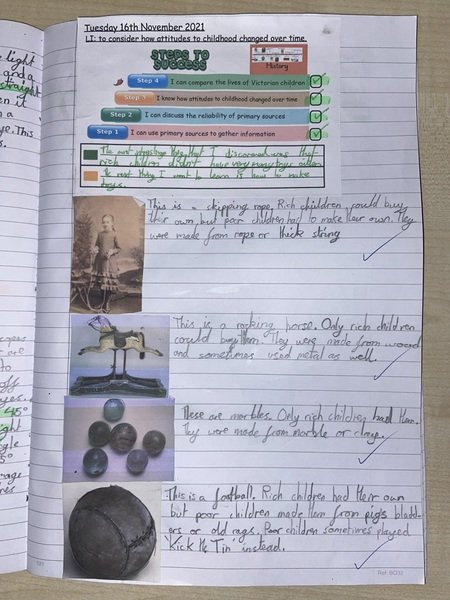 light
and a
straight
en it
a
ye. This
Tuesday 16th November 2021
LI: to consider how attitudes to childhood changed over time.
STEPS TO
SUCCESS
History
Step 4 I can compare the lives of Victorian children
Step 3 I know how attitudes to childhood changed over time
Step 2 I can discuss the reliability of primary sources
Step 1 I can use primary sources to gather information
The most thing that I discovered was that
rich children didn't have very many toys either.
The next thing I want to learn is how to make
toys.
This is a skipping rope. Rich children could buy
their own but poor children had to make their own. They
were made from rope or thick string
This is a rocking horse. Only rich children
could buy them. They were made from wood
and sometimes used metal as well.
These are marbles. Only rich children had them.
They were made from marble or claye.
This is a football. Rich children had their own
but poor children made them from pigs bladd-
ers or old rags. Poor children sometimes played
'Kick the Tin' instead.
are
to
off
yes.
45°
ght
gle
5°
rage
res